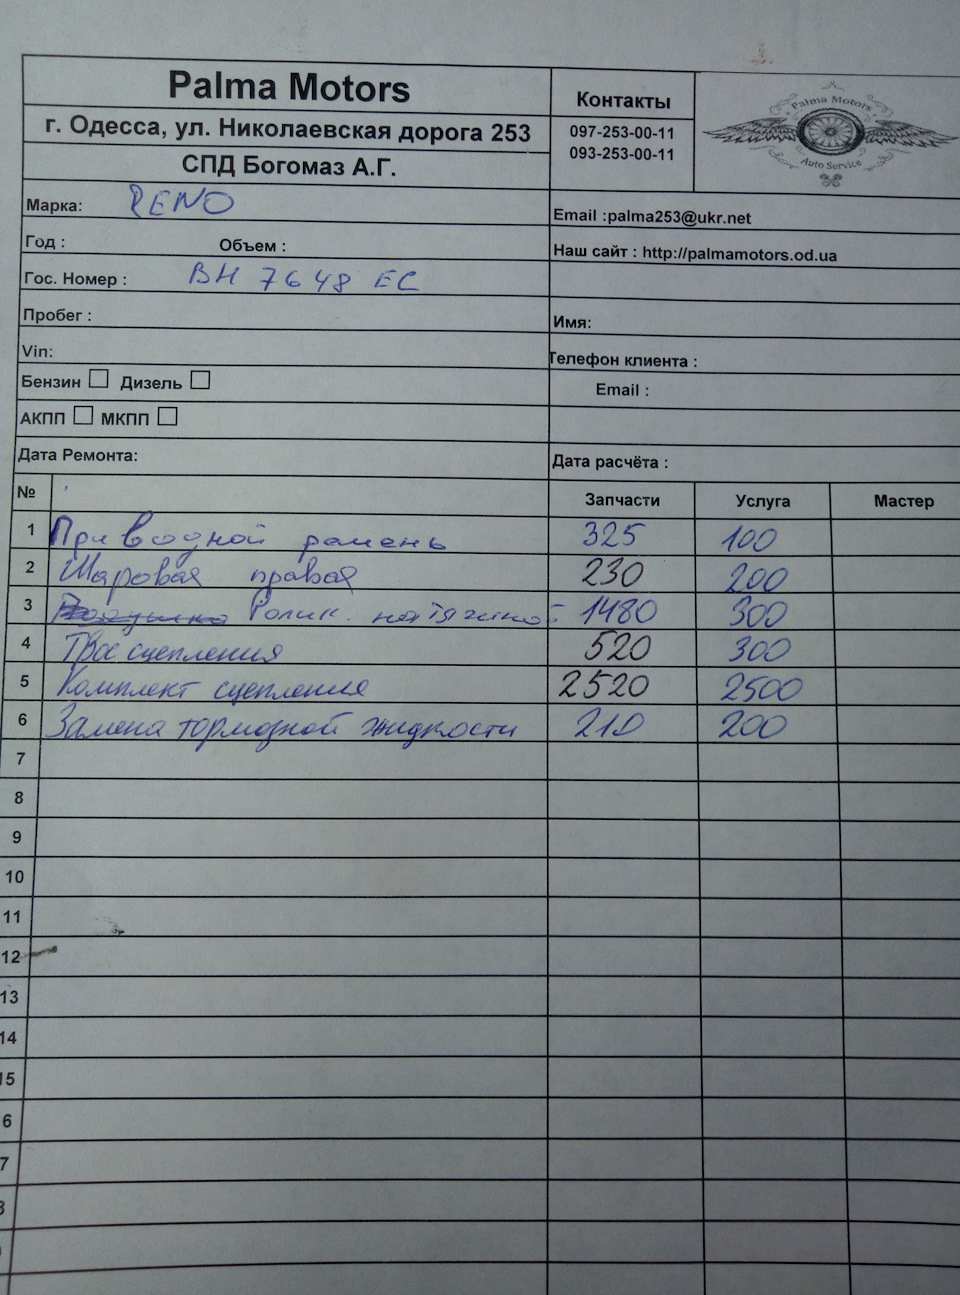 Palma Motors
г. Одесса, ул. Николаевская дорога 253
СПД Богомаз А.Г.
Контакты
097-253-00-11
093-253-00-11
Palma Motors
Auto Service
Марка: RENO
Email :palma253@ukr.net
Год : Объем :
Наш сайт : http://palmamotors.od.ua
Гос. Номер : ВН 7648 ЕС
Пробег :
Имя:
Vin:
Телефон клиента :
Бензин Дизель
Email :
АКПП МКПП
Дата Ремонта:
Дата расчёта :
№ Запчасти Услуга Мастер
1 Приводной ремень 325 100
2 Шаровая правая 230 200
3 Ролик. натяжной 1480 300
4 Трос сцепления 520 300
5 Комплект сцепления 2520 2500
6 Замена тормозной жидкости 210 200
7
8
9
10
11
12
13
14
15
6
7